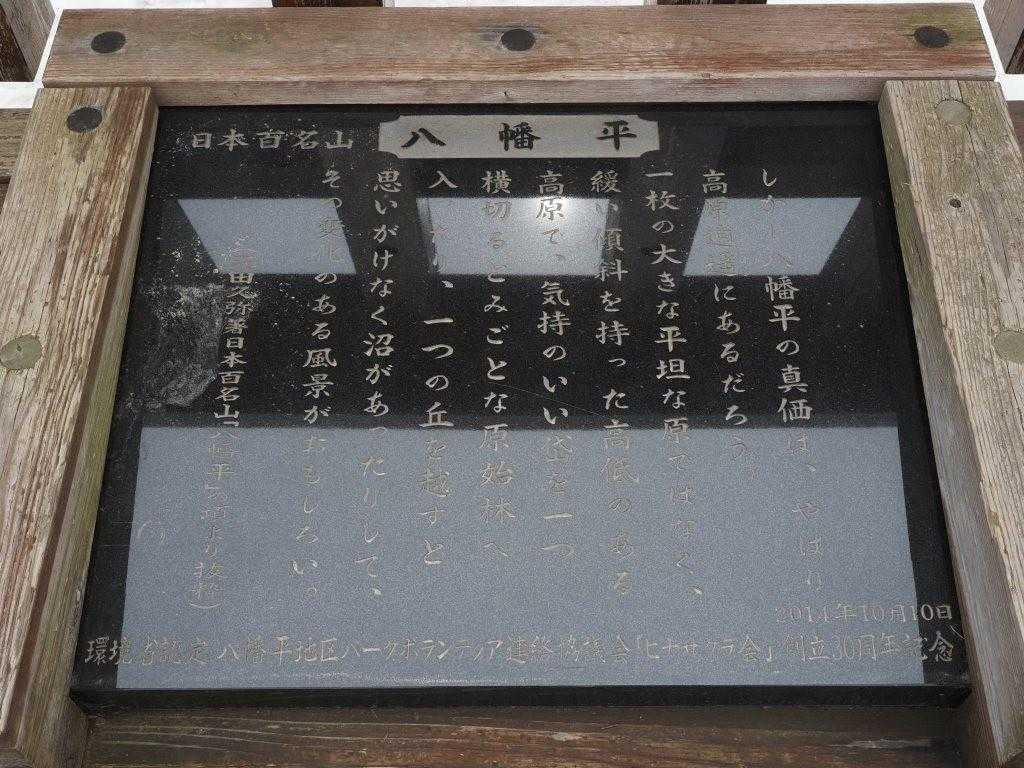 日本百名山
八幡平
しかし八幡平の真価は、やはり
高原逍遥にあるだろう
一枚の大きな平坦な原ではなく、
緩い傾斜を持った高低のある
高原で、気持のいい岱を一つ
横切るとみごとな原始林へ
入ったり、一つの丘を越すと
思いがけなく沼があったりして、
その変化のある風景がおもしろい。
田久弥著日本百名山「八幡平」の項より抜粋)
2014年10月10日
環境省認定 八幡平地区パークボランティア連絡協議会「ヒナザクラ会」 創立30周年記念